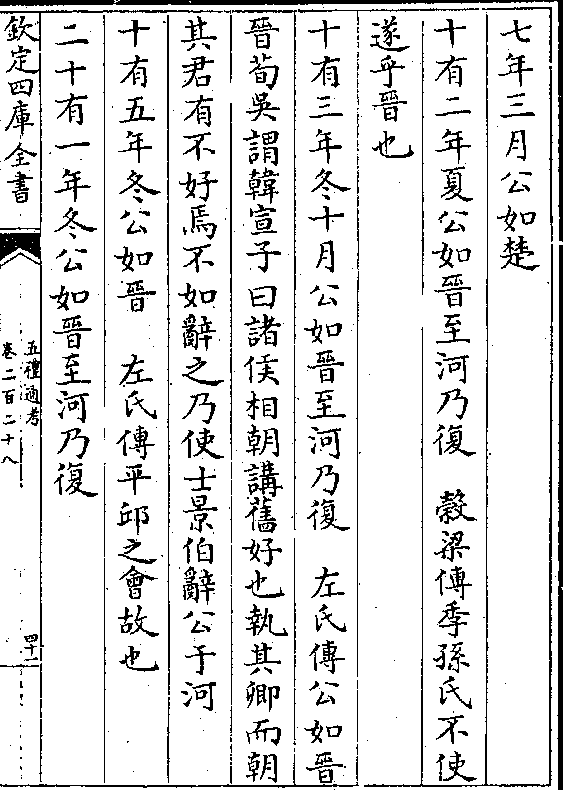 七年三月公如楚
十有二年夏公如晉至河乃復　穀梁傳季孫氏不使
遂乎晉也
十有三年冬十月公如晉至河乃復　左氏傳公如晉
晉荀吳謂韓宣子曰諸侯相朝講舊好也執其卿而朝
其君有不好焉不如辭之乃使士景伯辭公于河
十有五年冬公如晉　左氏傳平邱之會故也
二十有一年冬公如晉至河乃復
欽定四庫全書
五禮通考
卷二百二十八
四十一